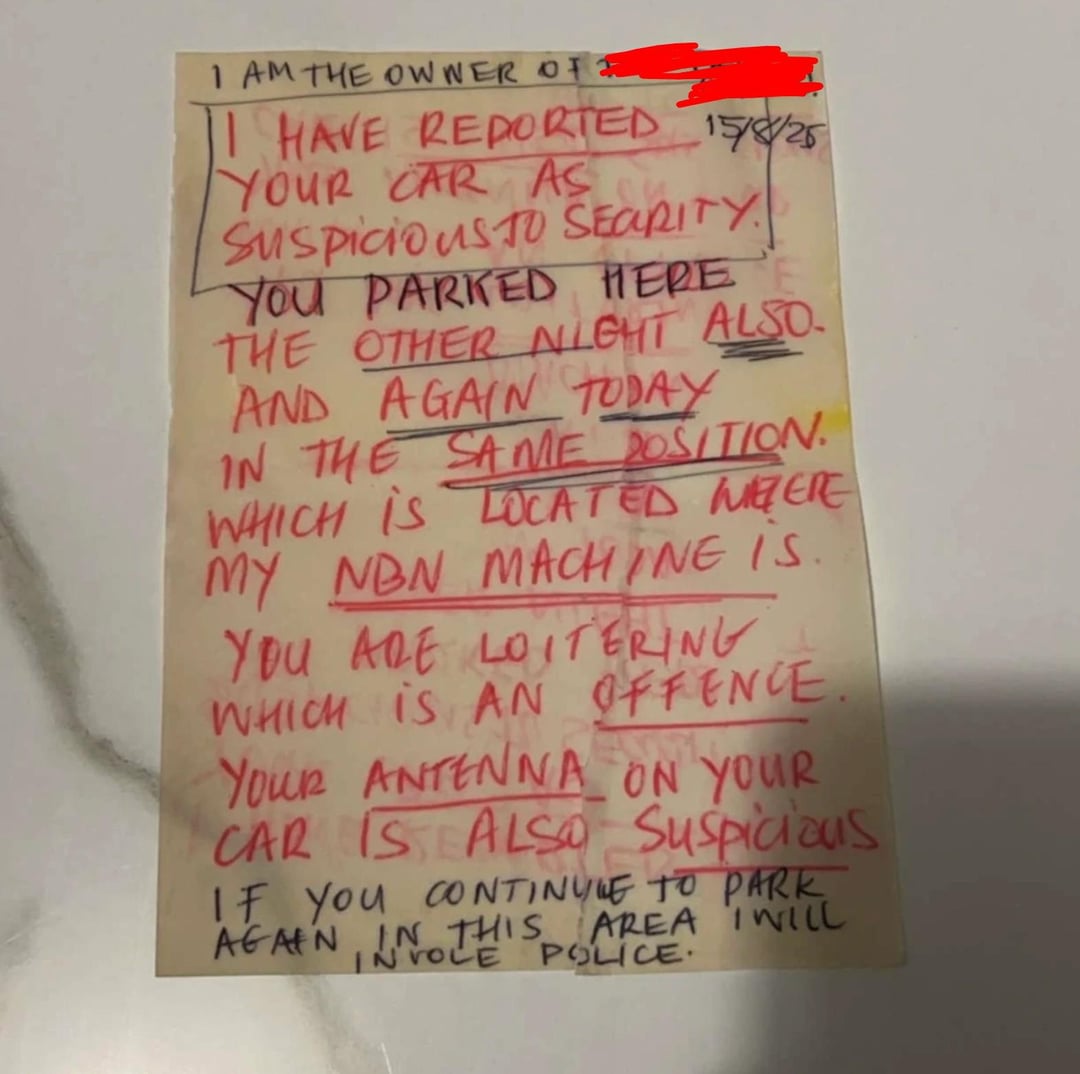 I AM THE OWNER OF
I HAVE REPORTED 15/8/25
YOUR CAR AS
SUSPICIOUS TO SECURITY.
YOU PARKED HERE
THE OTHER NIGHT ALSO.
AND AGAIN TODAY
IN THE SAME POSITION.
WHICH IS LOCATED WHERE
MY NBN MACHINE IS.
YOU ARE LOITERING
WHICH IS AN OFFENCE.
YOUR ANTENNA ON YOUR
CAR IS ALSO SUSPICIOUS
IF YOU CONTINUE TO PARK
AGAIN IN THIS AREA I WILL
INVOLE POLICE.